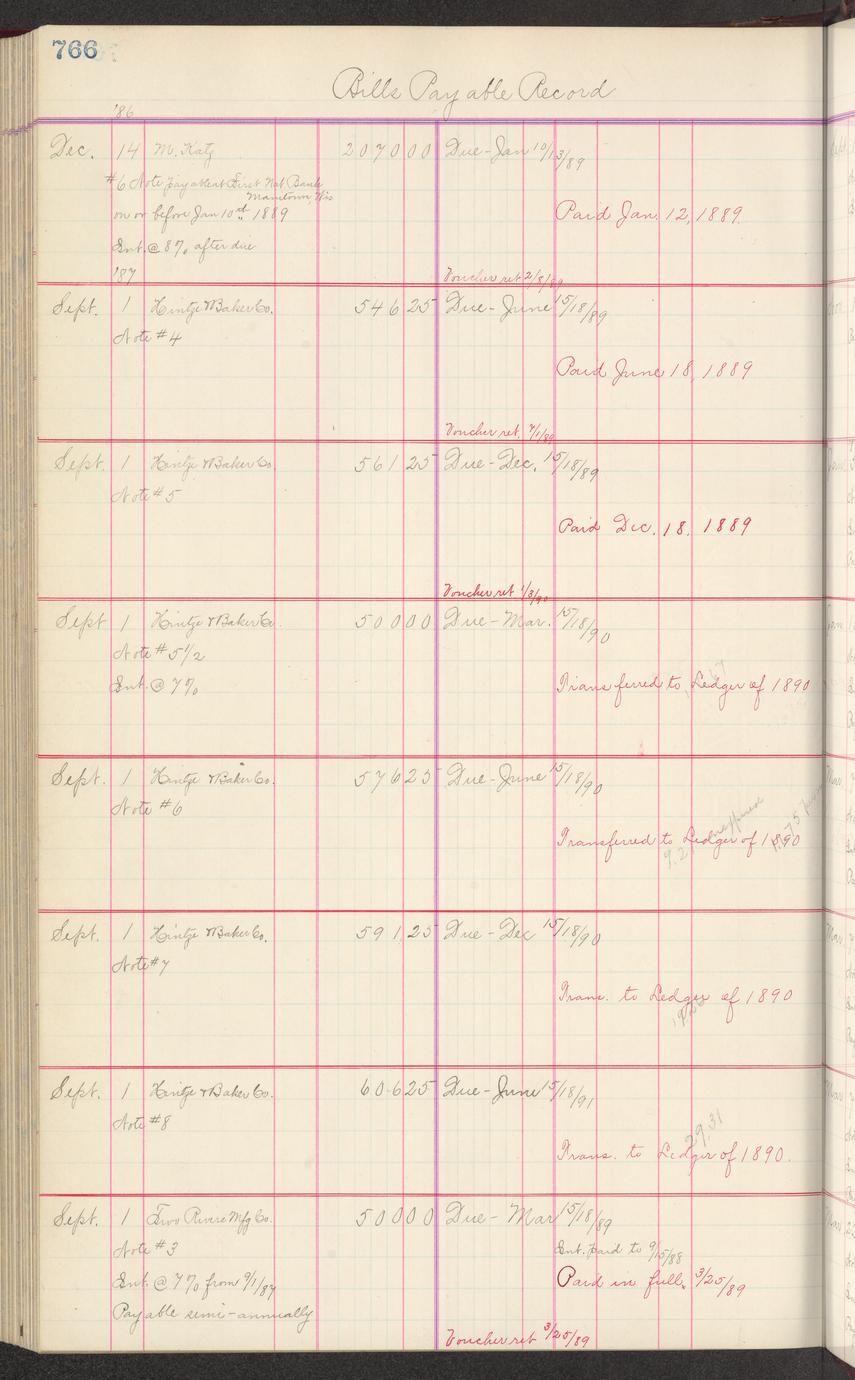 766
Bills Payable Record
'86
Dec. 14 M. Katz 2070 00 Due - Jan 10/13/89
#6 Note payable at First Nat Bank
Manitowoc, Wis
on or before Jan 10th 1889 Paid Jan. 12, 1889.
Int. @ 8% after due
'87 Voucher ret 2/8/89
Sept. 1 Hintze & Baker Co. 546 25 Due - June 15/18/89
Note #4
Paid June 18, 1889
Voucher ret. 7/1/89
Sept. 1 Hintze & Baker Co. 561 25 Due - Dec. 15/18/89
Note #5
Paid Dec. 18. 1889
Voucher ret 1/3/90
Sept 1 Hintze & Baker Co. 500 00 Due - Mar. 15/18/90
Note #5 1/2
Int. @ 7% Transferred to Ledger of 1890
Sept. 1 Hintze & Baker Co. 576 25 Due - June 15/18/90
Note #6
Transferred to Ledger of 1890
Sept. 1 Hintze & Baker Co. 591 25 Due - Dec 15/18/90
Note #7
Trans. to Ledger of 1890
Sept. 1 Hintze & Baker Co. 606 25 Due - June 15/18/91
Note #8
29.31
Trans. to Ledger of 1890.
Sept. 1 Two Rivers Mfg Co. 500 00 Due - Mar 15/18/89
Note #3 Int. paid to 9/15/88
Int. @ 7% from 9/1/87 Paid in full. 3/25/89
Payable semi-annually
Voucher ret 3/25/89